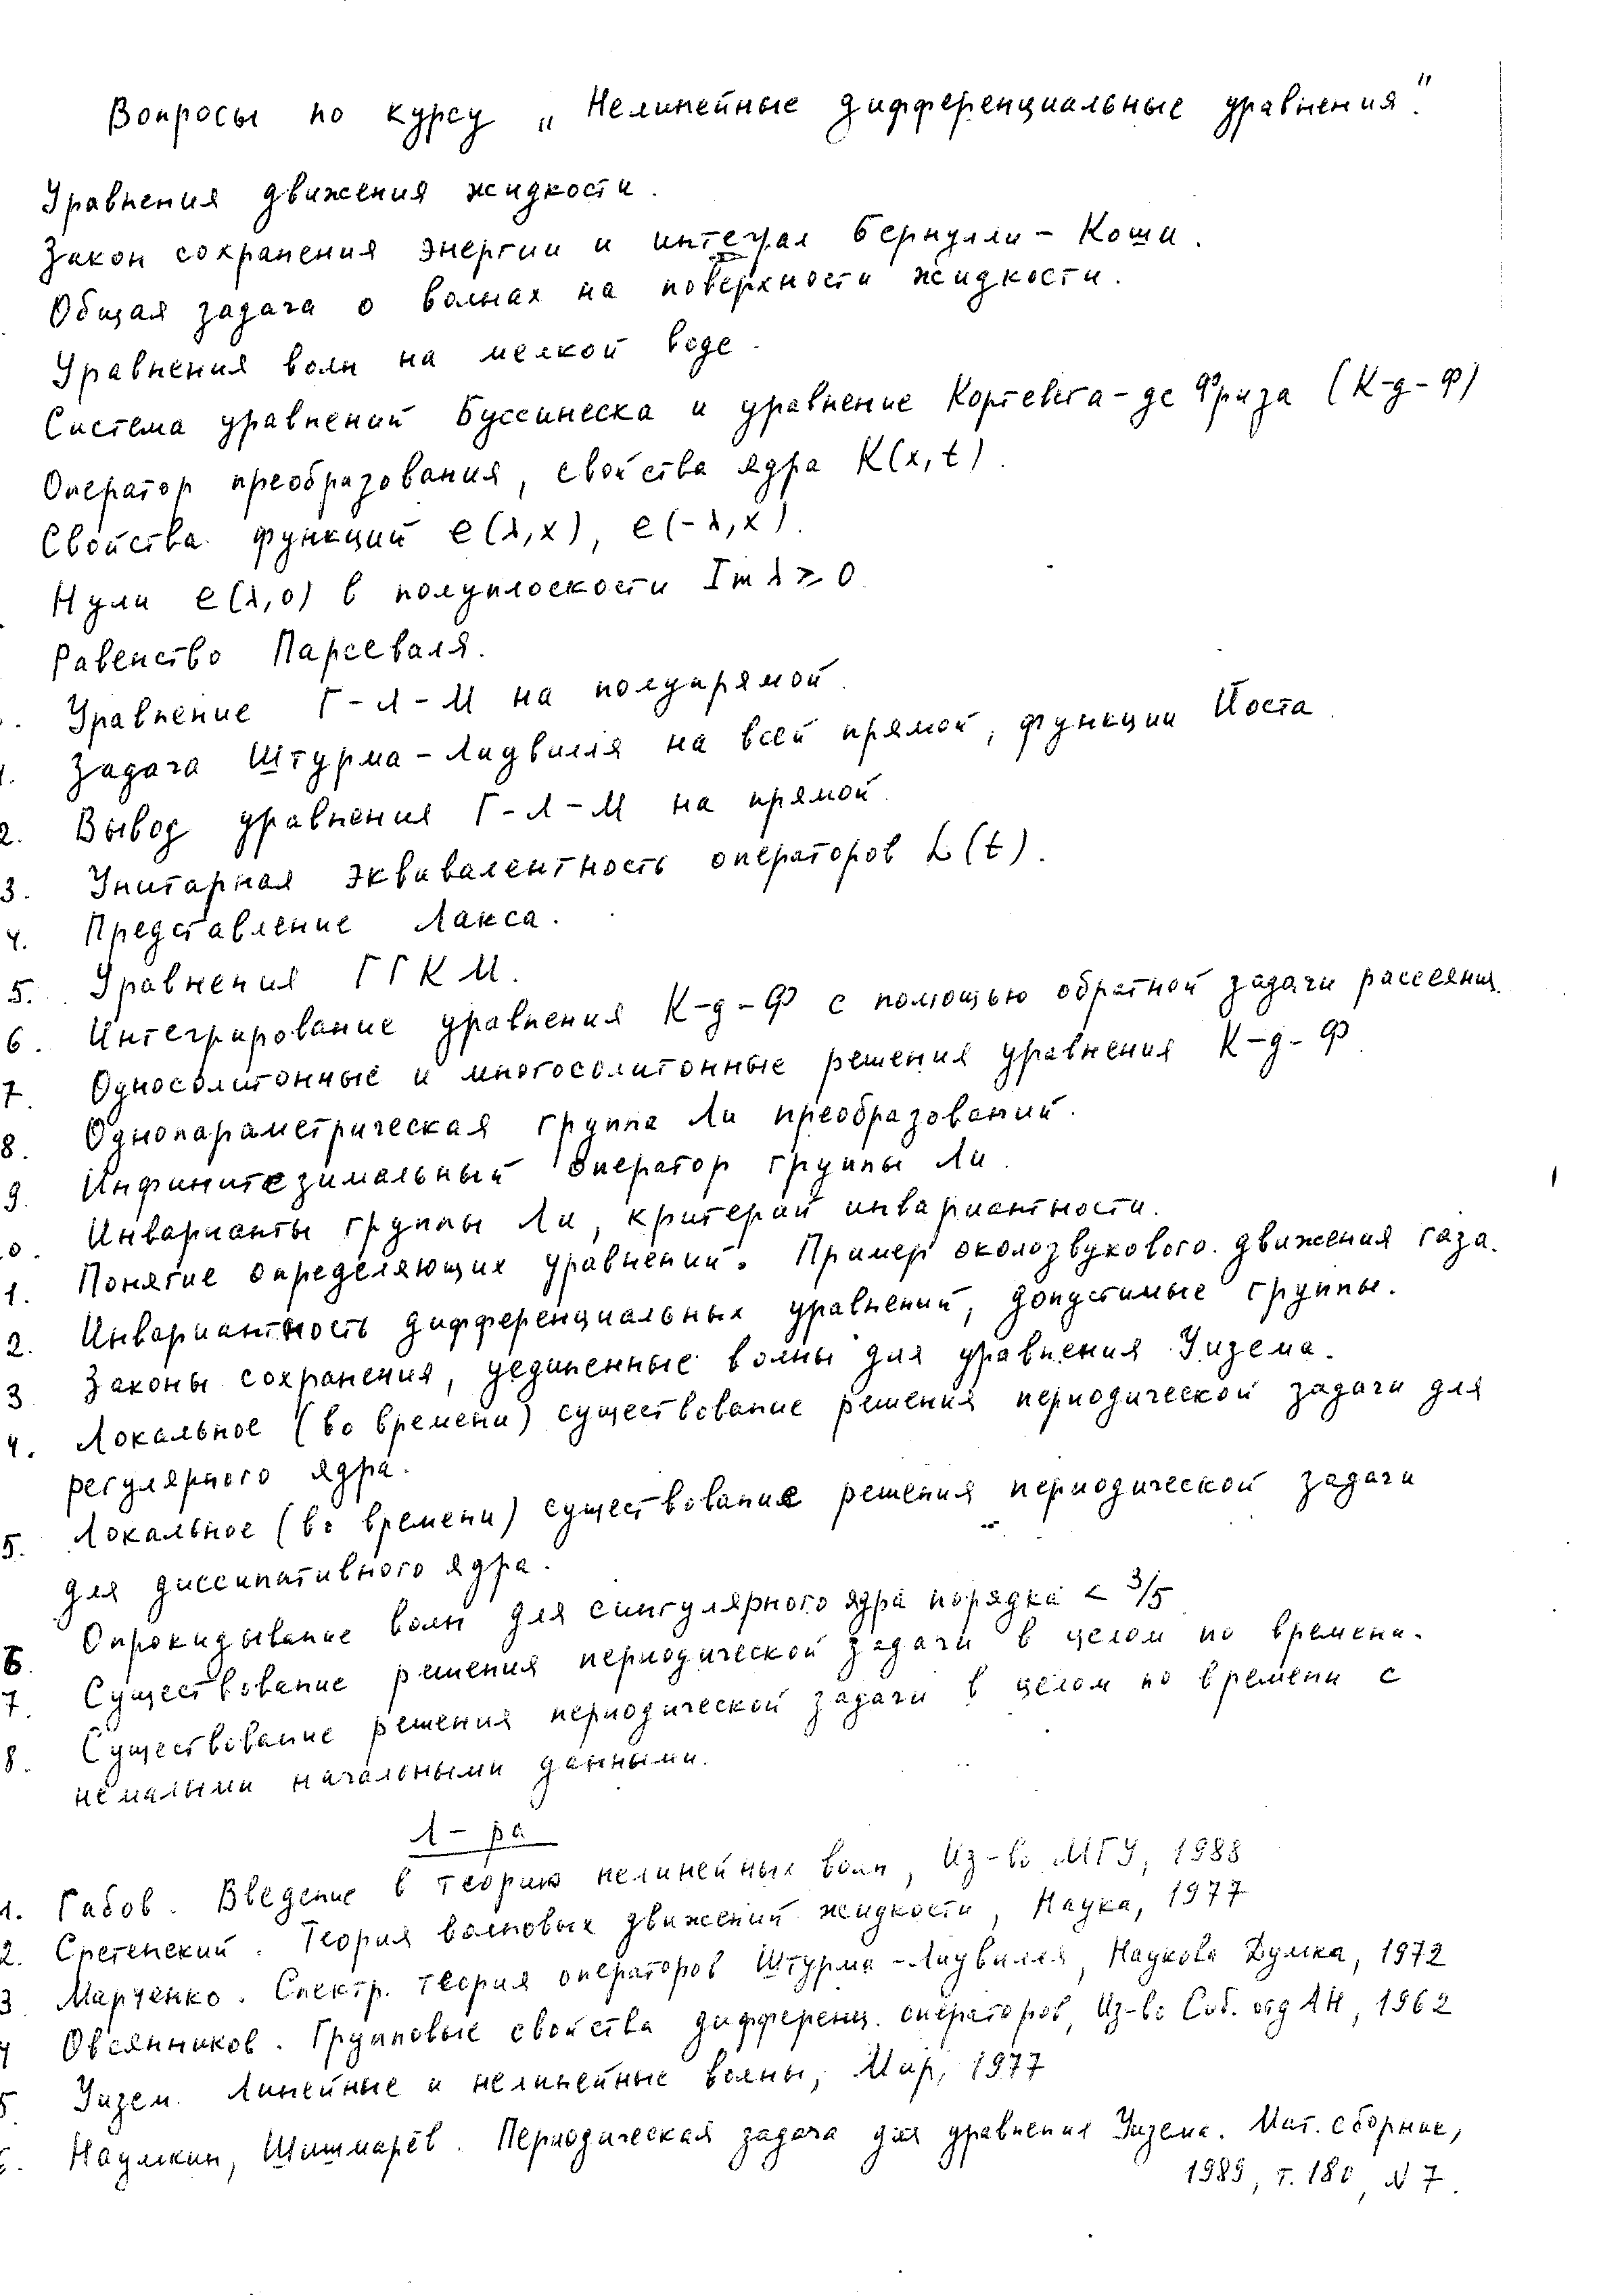 Вопросы по курсу „Нелинейные дифференциальные уравнения."
Уравнения движения жидкости.
Закон сохранения энергии и интеграл Бернулли - Коши.
Общая задача о волнах на поверхности жидкости.
Уравнения волн на мелкой воде.
Система уравнений Буссинеска и уравнение Кортевега-де Фриза (К-д-Ф)
Оператор преобразования, свойства ядра K(x,t).
Свойства функций e(λ,x), e(-λ,x).
Нули e(λ,0) в полуплоскости Im λ ≥ 0.
Равенство Парсеваля.
. Уравнение Г-Л-М на полупрямой.
1. Задача Штурма-Лиувилля на всей прямой, функции Йоста.
2. Вывод уравнения Г-Л-М на прямой.
3. Унитарная эквивалентность операторов L(t).
4. Представление Лакса.
5. Уравнения ГГКМ.
6. Интегрирование уравнения К-д-Ф с помощью обратной задачи рассеяния.
7. Односолитонные и многосолитонные решения уравнения К-д-Ф.
8. Однопараметрическая группа Ли преобразований.
9. Инфинитезимальный оператор группы Ли.
0. Инварианты группы Ли, критерий инвариантности.
1. Понятие определяющих уравнений. Пример околозвукового движения газа.
2. Инвариантность дифференциальных уравнений, допустимые группы.
3 Законы сохранения, уединенные волны для уравнения Уизема.
4. Локальное (во времени) существование решения периодической задачи для
регулярного ядра.
5. Локальное (во времени) существование решения периодической задачи
для диссипативного ядра.
6. Опрокидывание волн для сингулярного ядра порядка < 3/5
7. Существование решения периодической задачи в целом по времени.
8. Существование решения периодической задачи в целом по времени с
немалыми начальными данными.
Л-ра
1. Габов. Введение в теорию нелинейных волн, Из-во МГУ, 1988
2. Сретенский. Теория волновых движений жидкости, Наука, 1977
3. Марченко. Спектр. теория операторов Штурма-Лиувилля, Наукова Думка, 1972
4 Овсянников. Групповые свойства дифференц. операторов, Из-во Сиб. отд АН, 1962
5 Уизем. Линейные и нелинейные волны, Мир, 1977
. Наумкин, Шишмарёв. Периодическая задача для уравнения Уизема. Мат. сборник,
1989, т. 180, N 7.